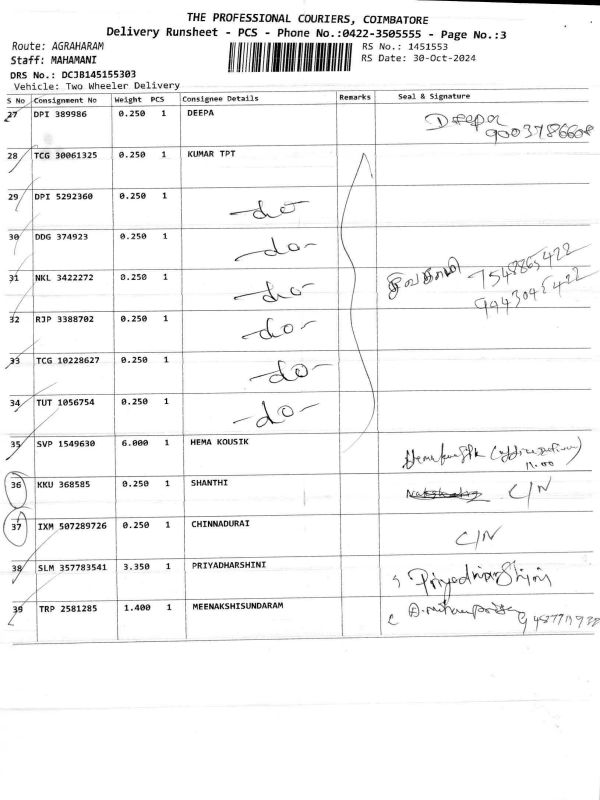 THE PROFESSIONAL COURIERS, COIMBATORE
Delivery Runsheet - PCS - Phone No.:0422-3505555 - Page No.:3
Route: AGRAHARAM RS No.: 1451553
Staff: MAHAMANI RS Date: 30-Oct-2024
DRS No.: DCJB145155303
Vehicle: Two Wheeler Delivery
S No Consignment No Weight PCS Consignee Details Remarks Seal & Signature
27 DPI 389986 0.250 1 DEEPA Deepa
9003786608
28 TCG 30061325 0.250 1 KUMAR TPT
29 DPI 5292360 0.250 1 -do-
30 DDG 374923 0.250 1 -do-
31 NKL 3422272 0.250 1 -do- சிவகாமி 7548865422
9943045422
32 RJP 3388702 0.250 1 -do-
33 TCG 10228627 0.250 1 -do-
34 TUT 1056754 0.250 1 -do-
35 SVP 1549630 6.000 1 HEMA KOUSIK
11.00
36 KKU 368585 0.250 1 SHANTHI C/N
37 IXM 507289726 0.250 1 CHINNADURAI C/N
38 SLM 357783541 3.350 1 PRIYADHARSHINI Priyadharshini
39 TRP 2581285 1.400 1 MEENAKSHISUNDARAM